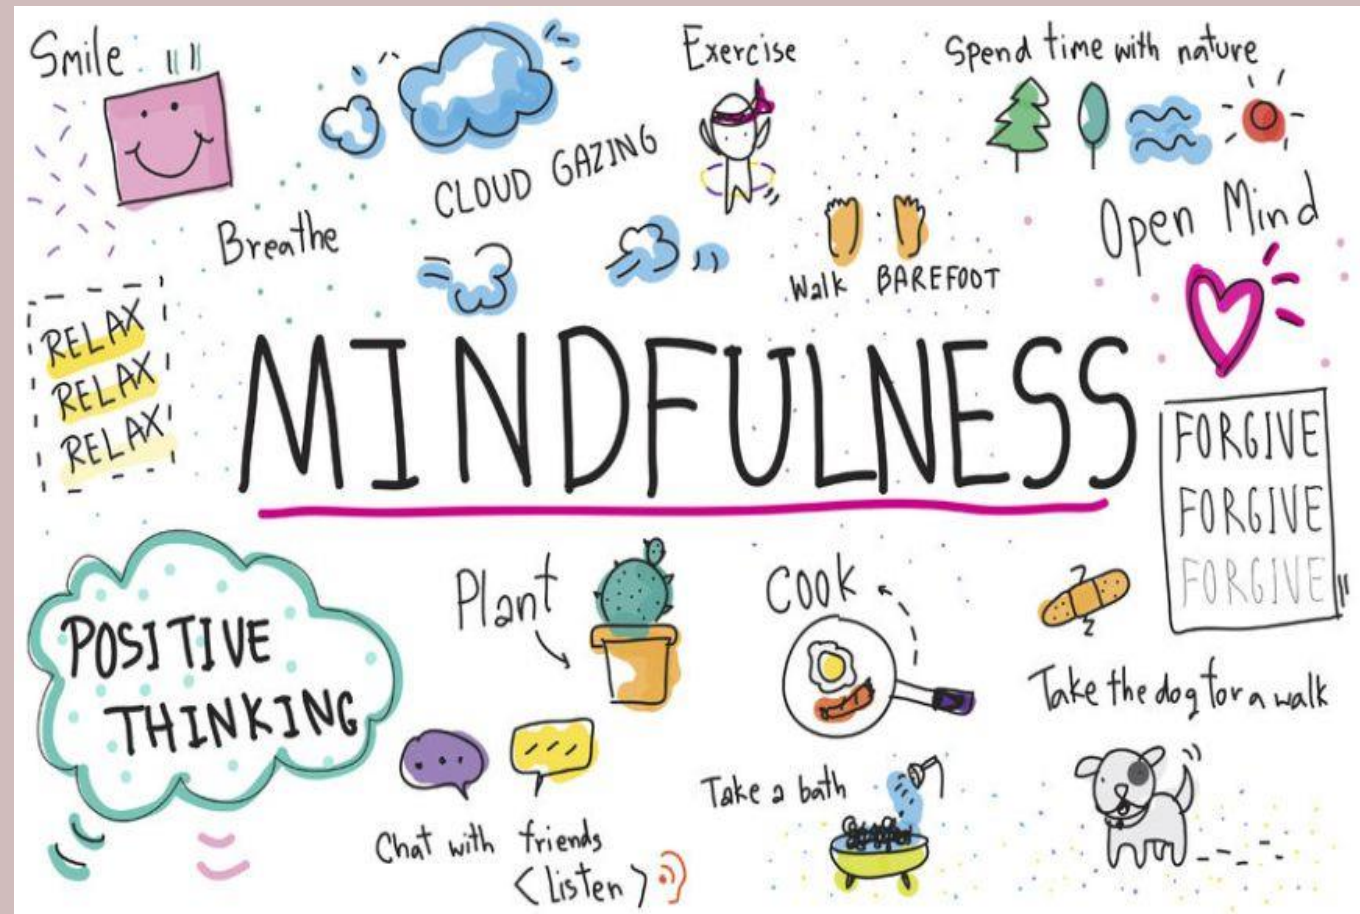 Smile
Exercise
Spend time with nature
CLOUD GAZING
Breathe
Walk BAREFOOT
Open Mind
RELAX
RELAX
RELAX
MINDFULNESS
FORGIVE
FORGIVE
FORGIVE
POSITIVE
THINKING
Plant
Cook
Take the dog for a walk
Chat with friends
<Listen>
Take a bath